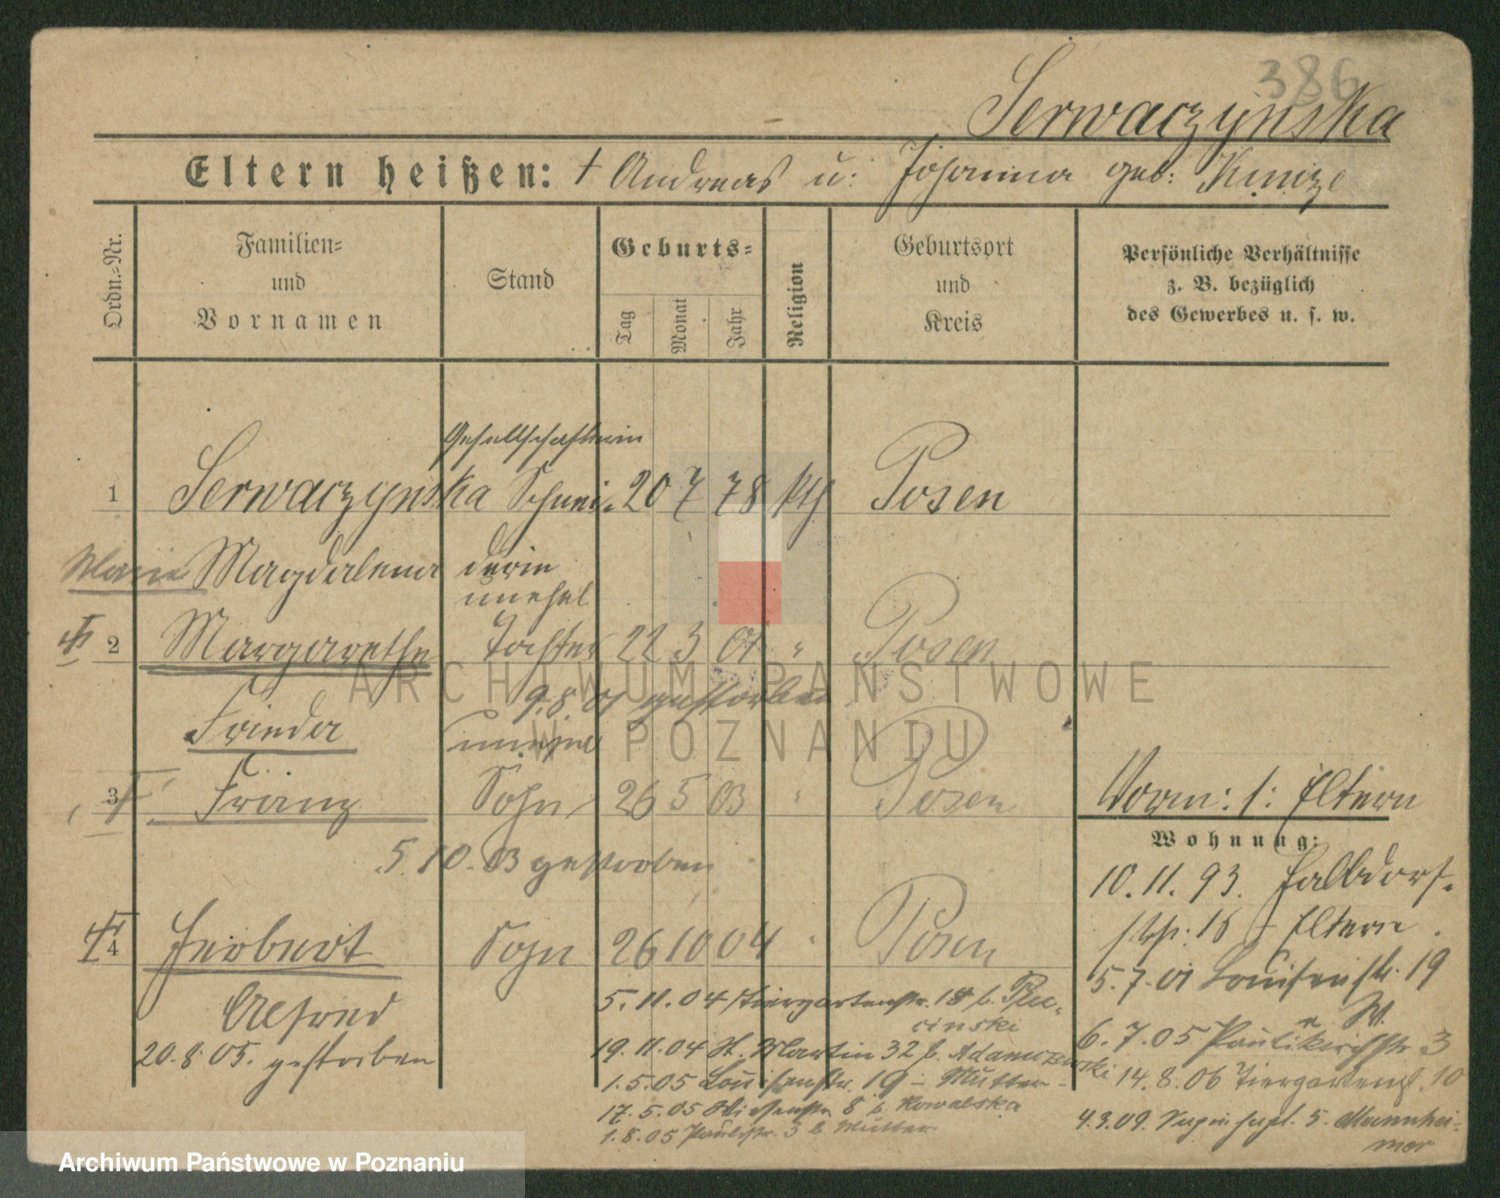 386
Serwaczynska
Eltern heißen: † Andreas u: Johanna geb: Kunze
Ordn.-Nr.
Familien-
und
Vornamen
Stand
Geburts-
Tag
Monat
Jahr
Religion
Geburtsort
und
Kreis
Persönliche Verhältnisse
z. B. bezüglich
des Gewerbes u. s. w.
Gesellschafterin
1 Serwaczynska Schnei- 20 7 78 kth Posen
Marie Magdalena derin
unehel
2 Margarethe Tochter 22 3 01 " Posen
9.8.01 gestorben
Frieda unehel
3 Franz Sohn 26 5 03 " Posen
5.10.03 gestorben
4 Herbert Sohn 26 10 04 Posen
Alfred
20.8.05. gestorben
Vorm: s: Eltern
Wohnung:
10.11.93. Halbdorf-
str. 18 Eltern
5.7.01 Louisenstr. 19
W.
6.7.05 Paulikirchstr 3
14.8.06 Tiergartenstr. 10
4.3.09. 5. Mannhei-
mer
5.11.04 Tiergartenstr. 18 b.
cinski
19.11.04 St. Martin 32 b. Adamczewski
1.5.05 Louisenstr. 19 - Mutter -
17.5.05 Wiesenstr 8 b. Kowalska
1.8.05 Paulistr. 3 b Mutter
ARCHIWUM PAŃSTWOWE
W POZNANIU
Archiwum Państwowe w Poznaniu